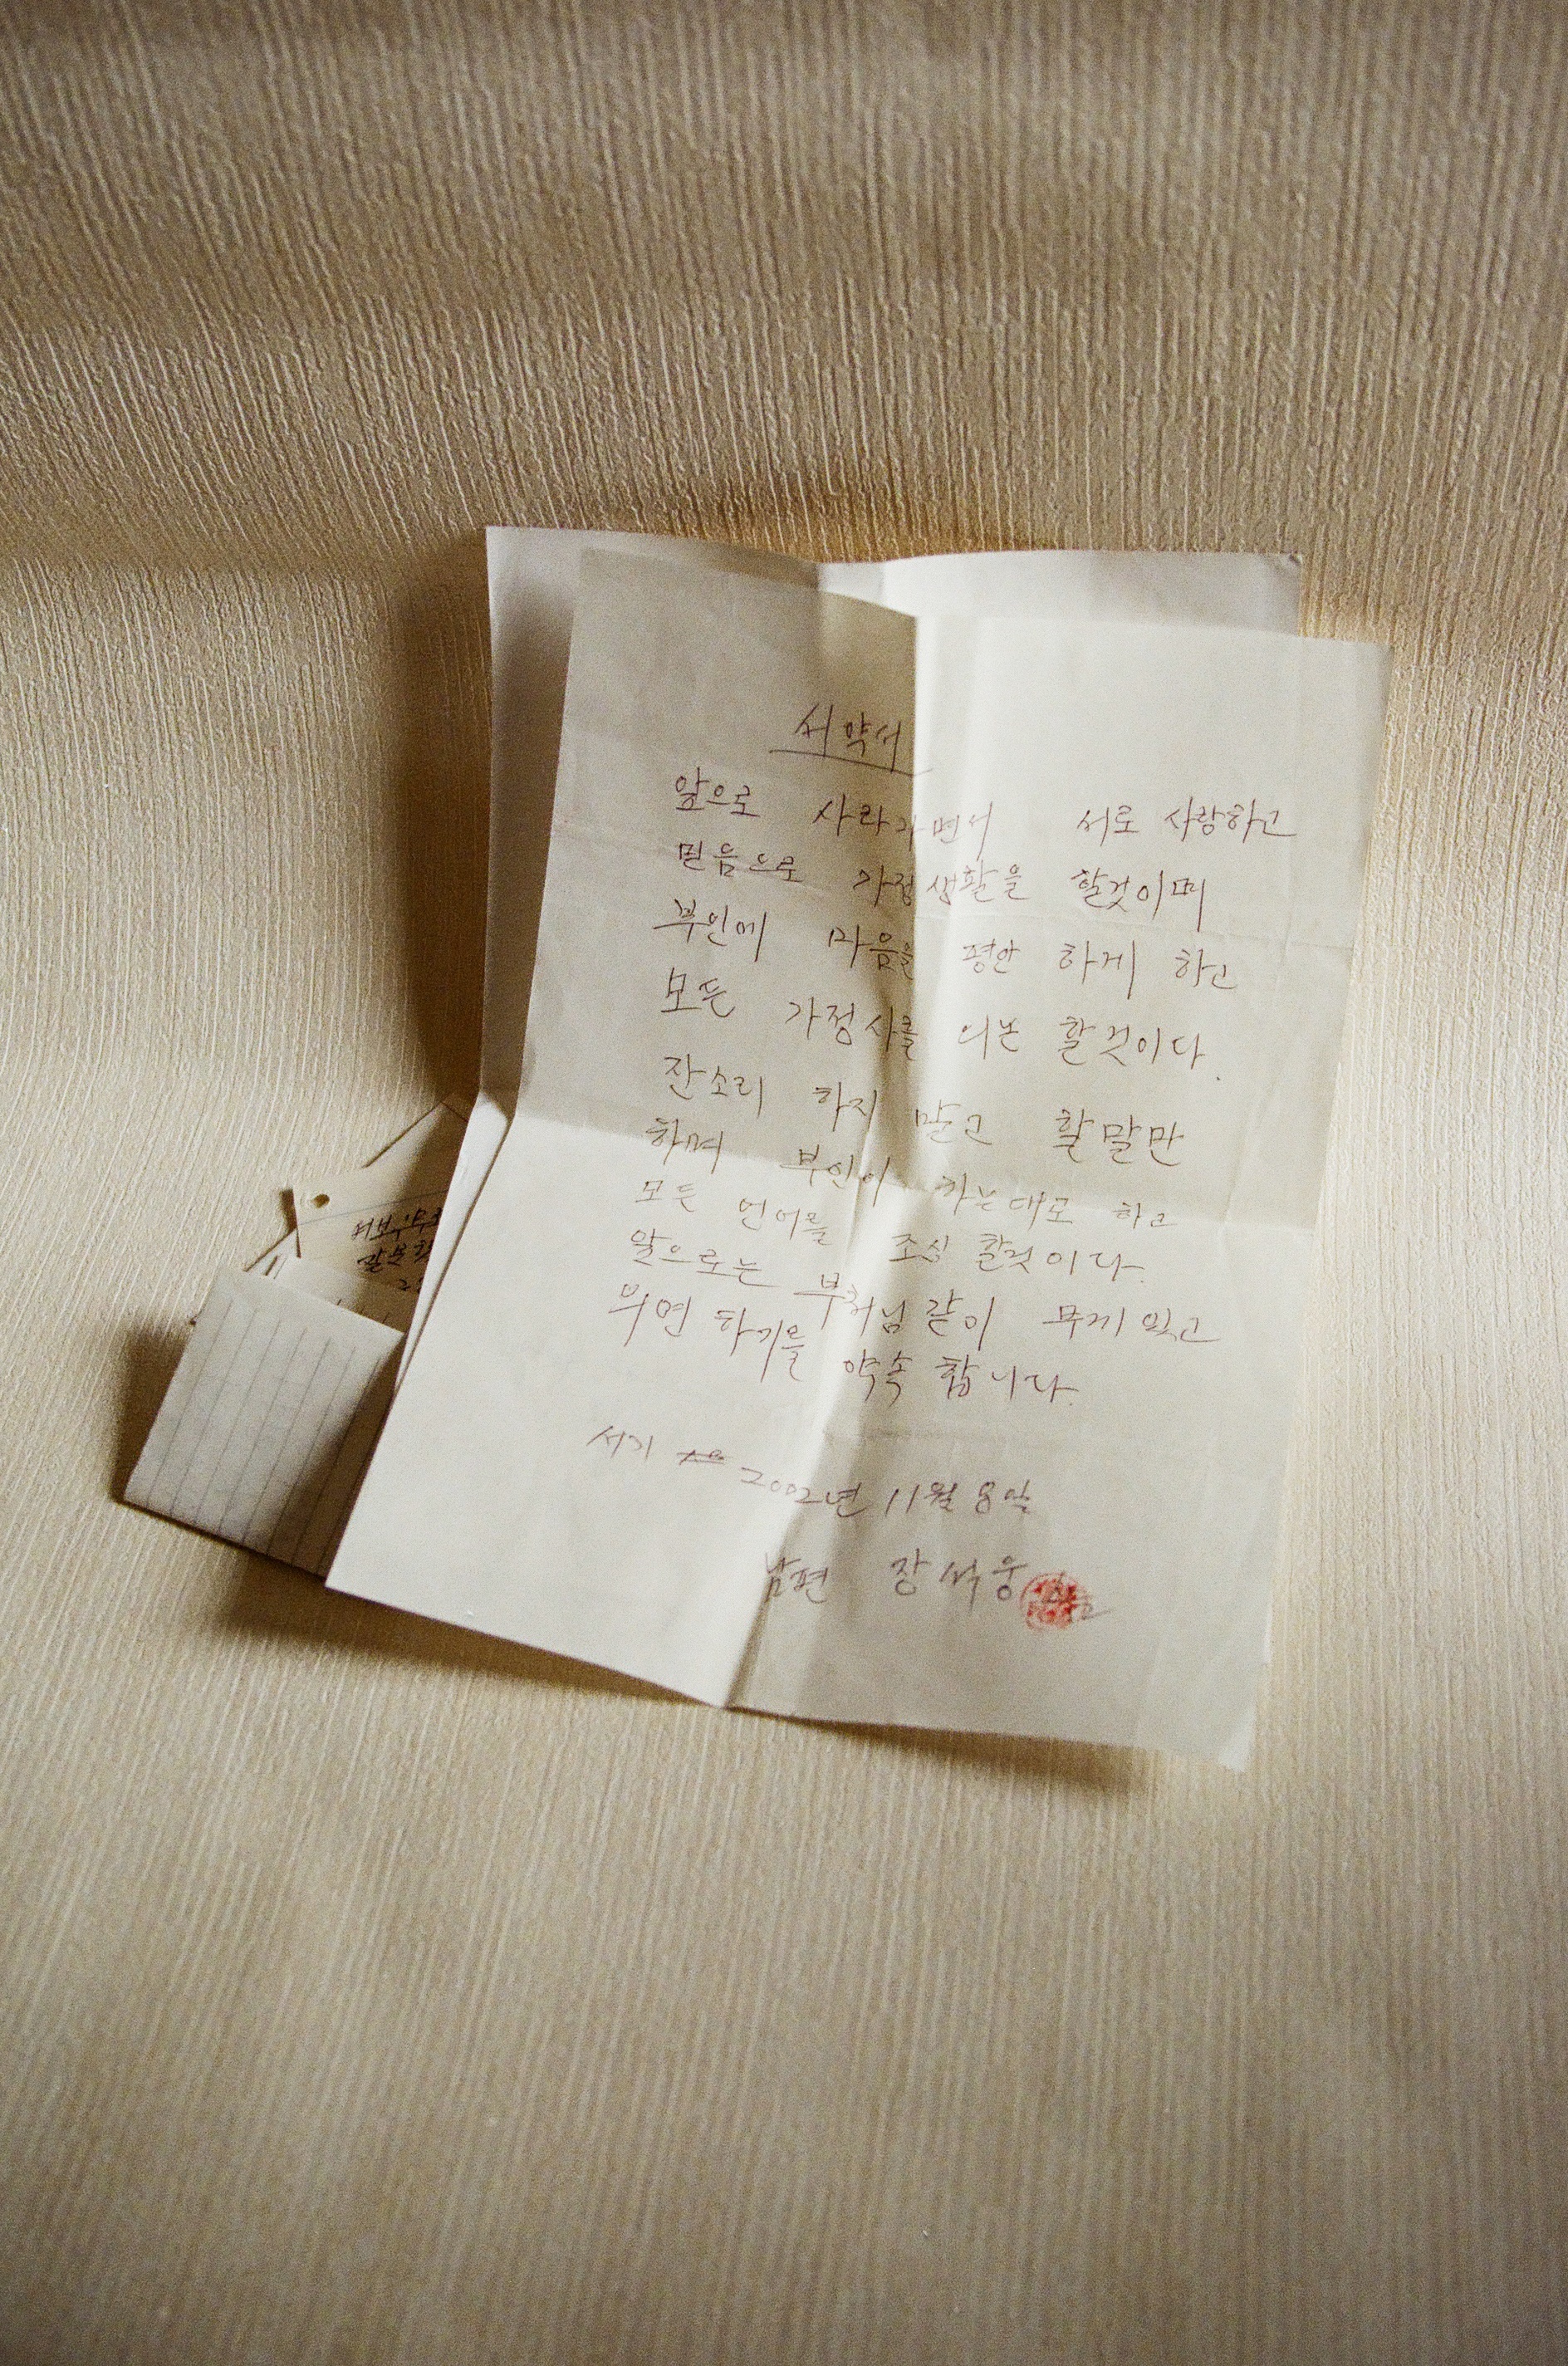 서약서
앞으로 사라가면서 서로 사랑하고
믿음으로 가정생활을 할것이며
부인에 마음을 평안 하게 하고
모든 가정사를 의논 할것이다.
잔소리 하지 말고 할말만
하며 부인이 하는대로 하고
모든 언어를 조심 할것이다.
앞으로는 부처님 같이 무게 있고
위면 하기를 약속 합니다.
서기 2002년 11월 8일
남편 장석웅